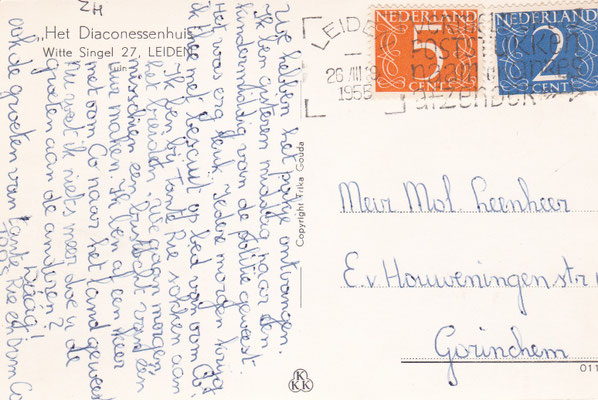 HZ
„Het Diaconessenhuis"
Witte Singel 27, LEIDEN
tuin
We hebben het pakje ontvangen.
Ik ben gisteren middag naar den
kindermiddag van de politie geweest.
Het was erg leuk. Iedere morgen krijg
ik thee met beschuit op bed van oom Co.
Ik ben bij Tante Rie sokken aan
het breiden. We gaan morgen
misschien een fruittocht van een
uur maken. Ik ben al een keer
met oom Co naar het land geweest
Nu weet ik niets meer doe u de
groeten aan de anderen?
Dáág!
ook de groeten van tante Rie en Oom Co
Copyright Trika Gouda
KKK
LEIDEN
26 VIII
1956
NEDERLAND
5
CENT
NEDERLAND
2
CENT
Meir Mol. Leenheer
E.v Houweningenstr 1
Gorinchem
011